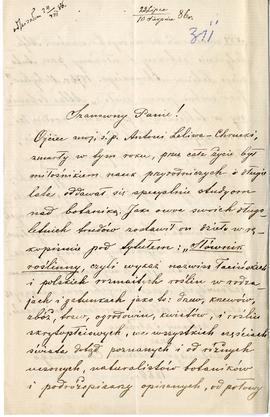 22 Lipca
10 Sierpnia 86 r.
Szanowny Panie!
Ojciec mój ś.p. Antoni Leliwa-Chrucki,
zmarły w tym roku, przez całe życie był
miłośnikiem nauk przyrodniczych a długie
lata oddawał się specyalnie studyom
nad botaniką. Jako owoc swoich długo-
letnich trudów zostawił on dzieło w rę-
kopiśmie pod tytułem: „Słownik
roślinny, czyli wykaz nazwisk łacińskich
i polskich rozmaitych roślin w rodza-
jach i gatunkach jako to: drzew, krzewów,
zbóż, traw, ogrodowin, kwiatów, i roślin
skrytopłciowych, we wszystkich częściach
świata dotąd poznanych i od różnych
uczonych, naturalistów botaników
i podróżopisarzy opisanych, od połowy